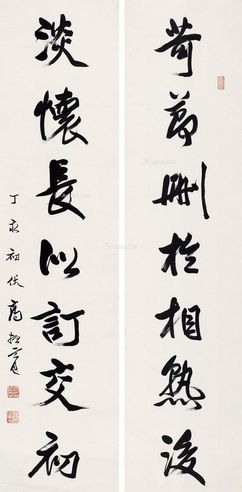 苛節刪於相熟後
淡懷長似訂交初
丁亥初伏高振霄